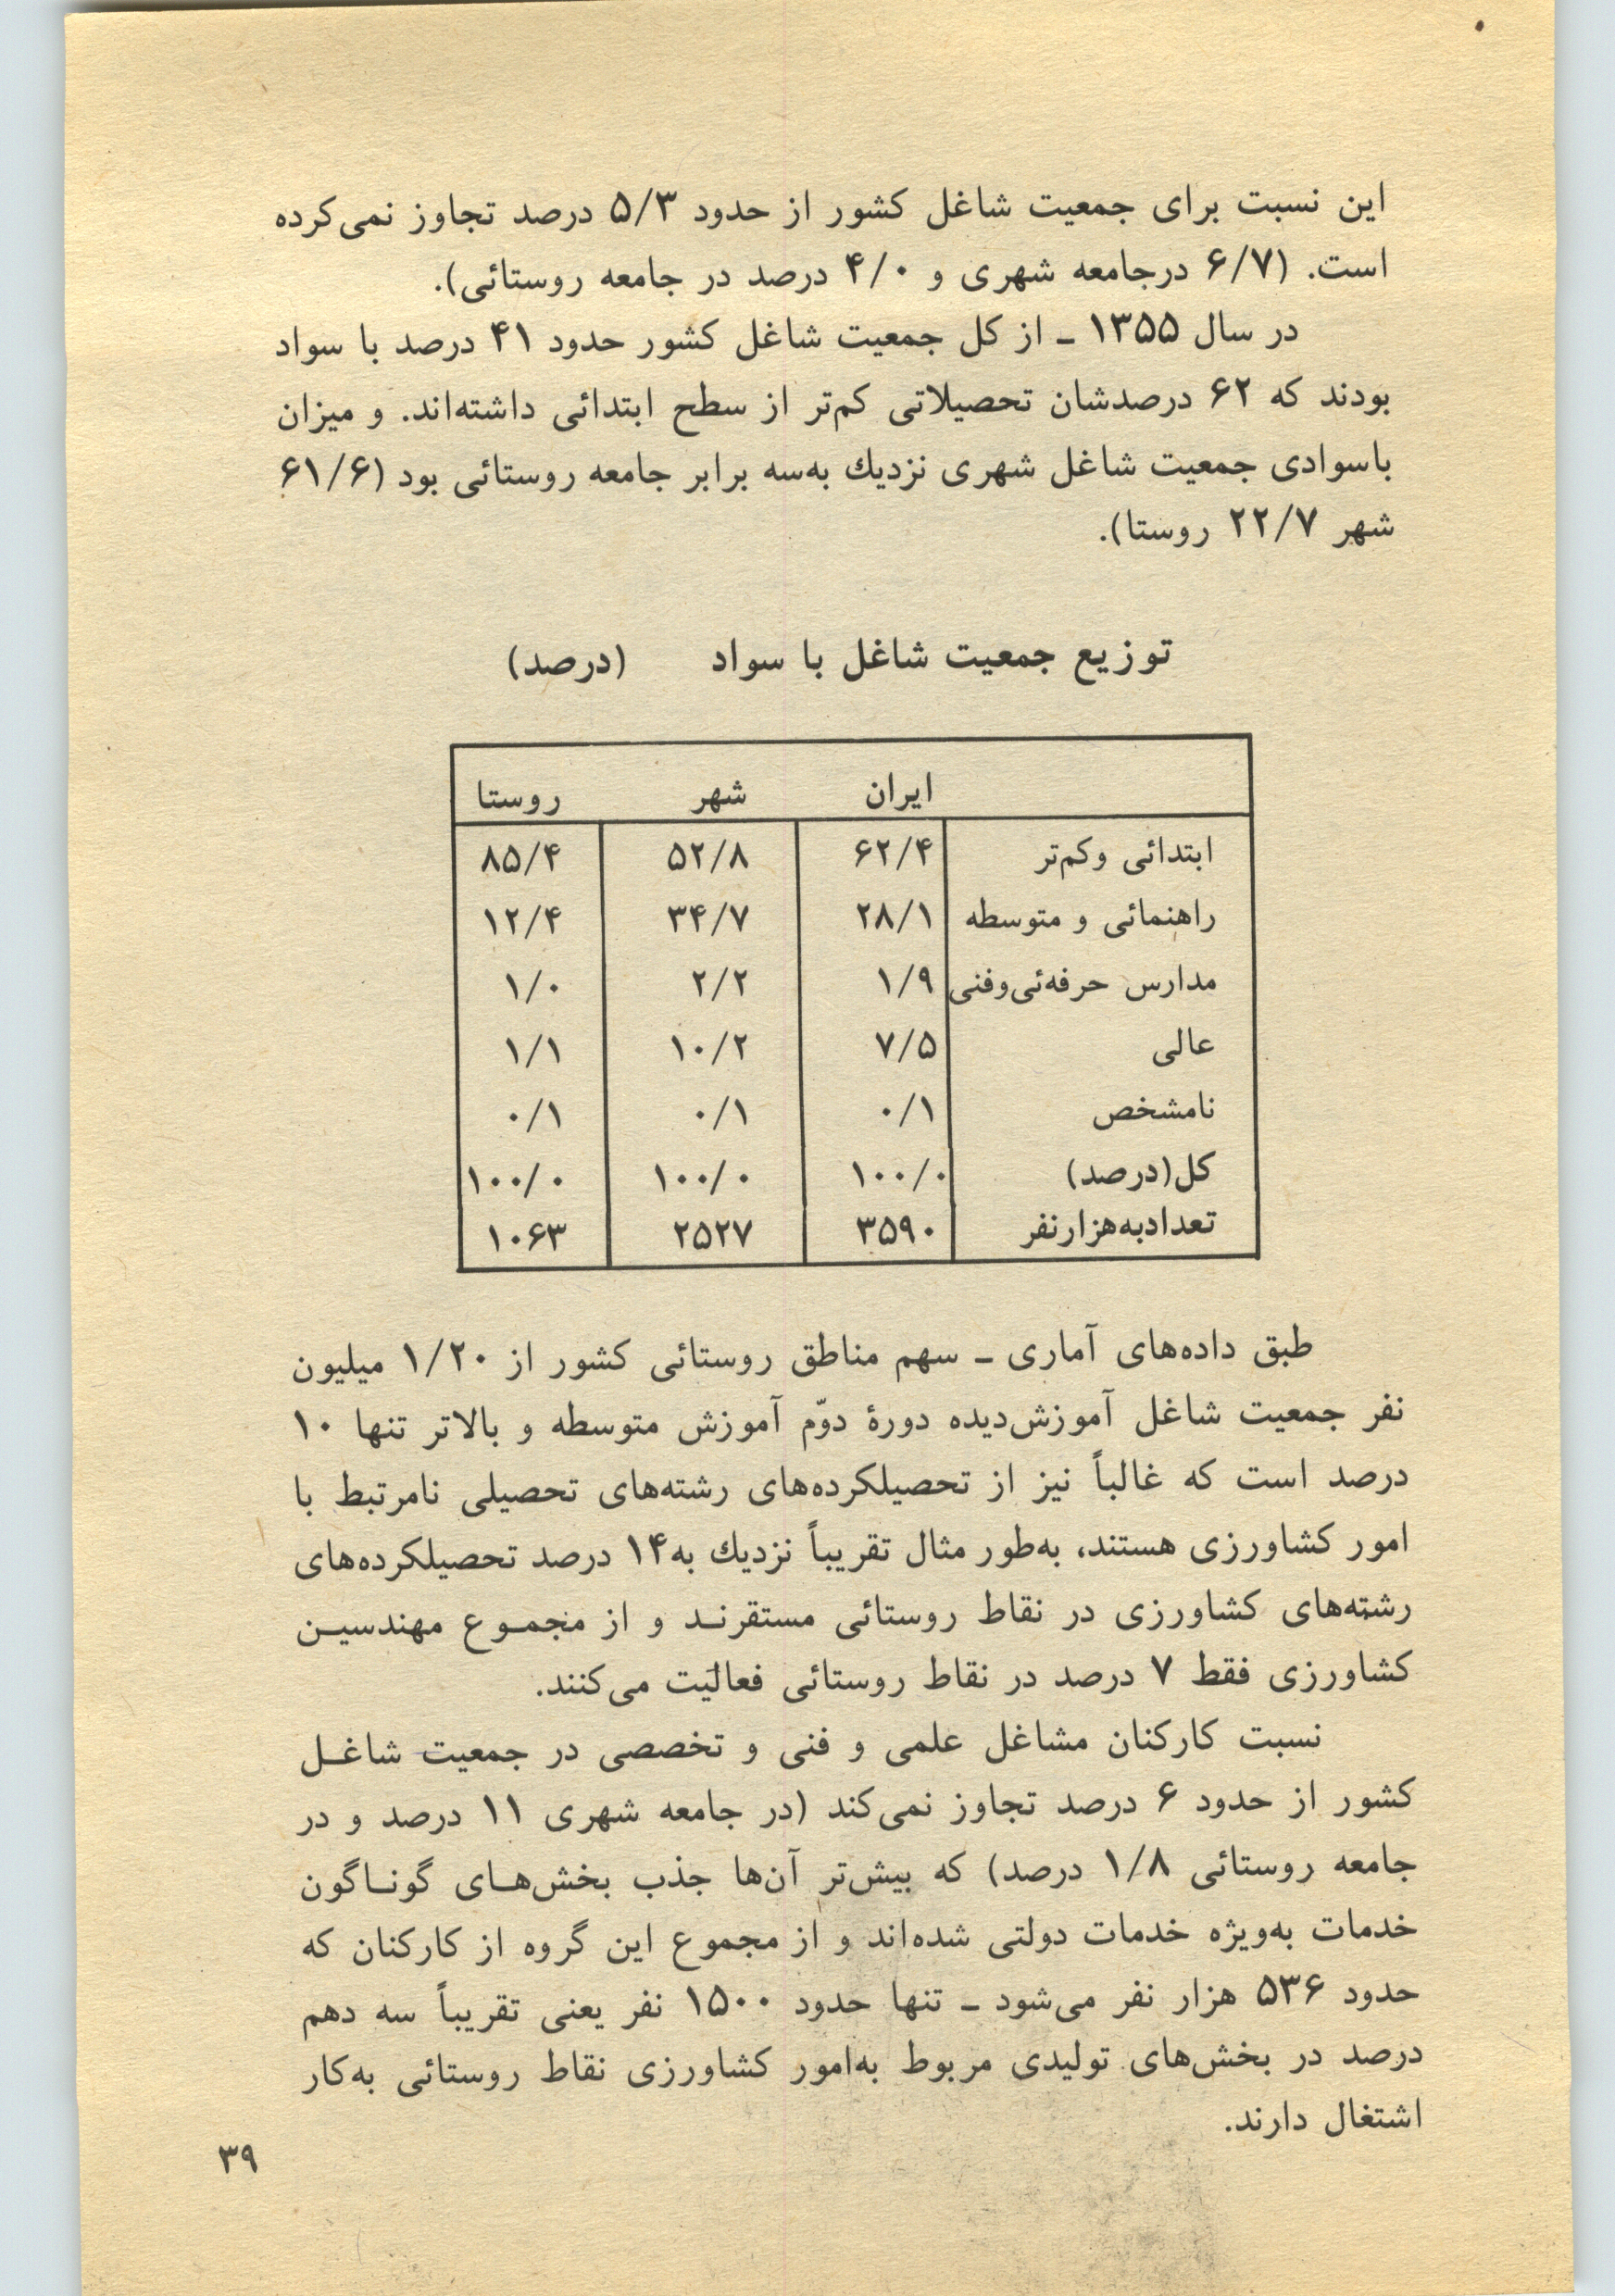 این نسبت برای جمعیت شاغل کشور از حدود ۵/۳ درصد تجاوز نمی‌کرده
است. (۶/۷ درجامعه شهری و ۴/۰ درصد در جامعه روستائی).
در سال ۱۳۵۵ ـ از کل جمعیت شاغل کشور حدود ۴۱ درصد با سواد
بودند که ۶۲ درصدشان تحصیلاتی کم‌تر از سطح ابتدائی داشته‌اند. و میزان
باسوادی جمعیت شاغل شهری نزدیك به‌سه برابر جامعه روستائی بود (۶۱/۶
شهر ۲۲/۷ روستا).
توزیع جمعیت شاغل با سواد (درصد)
ایران شهر روستا
ابتدائی وکم‌تر ۶۲/۴ ۵۲/۸ ۸۵/۴
راهنمائی و متوسطه ۲۸/۱ ۳۴/۷ ۱۲/۴
مدارس حرفه‌ئی‌وفنی ۱/۹ ۲/۲ ۱/۰
عالی ۷/۵ ۱۰/۲ ۱/۱
نامشخص ۰/۱ ۰/۱ ۰/۱
کل(درصد) ۱۰۰/۰ ۱۰۰/۰ ۱۰۰/۰
تعدادبه‌هزارنفر ۳۵۹۰ ۲۵۲۷ ۱۰۶۳
طبق داده‌های آماری ـ سهم مناطق روستائی کشور از ۱/۲۰ میلیون
نفر جمعیت شاغل آموزش‌دیده دورهٔ دوّم آموزش متوسطه و بالاتر تنها ۱۰
درصد است که غالباً نیز از تحصیلکرده‌های رشته‌های تحصیلی نامرتبط با
امور کشاورزی هستند، به‌طور مثال تقریباً نزدیك به۱۴ درصد تحصیلکرده‌های
رشته‌های کشاورزی در نقاط روستائی مستقرنـد و از مجمـوع مهندسیـن
کشاورزی فقط ۷ درصد در نقاط روستائی فعالیّت می‌کنند.
نسبت کارکنان مشاغل علمی و فنی و تخصصی در جمعیت شاغـل
کشور از حدود ۶ درصد تجاوز نمی‌کند (در جامعه شهری ۱۱ درصد و در
جامعه روستائی ۱/۸ درصد) که بیش‌تر آن‌ها جذب بخش‌هـای گونـاگون
خدمات به‌ویژه خدمات دولتی شده‌اند و از مجموع این گروه از کارکنان که
حدود ۵۳۶ هزار نفر می‌شود ـ تنها حدود ۱۵۰۰ نفر یعنی تقریباً سه دهم
درصد در بخش‌های تولیدی مربوط به‌امور کشاورزی نقاط روستائی به‌کار
اشتغال دارند.
۳۹